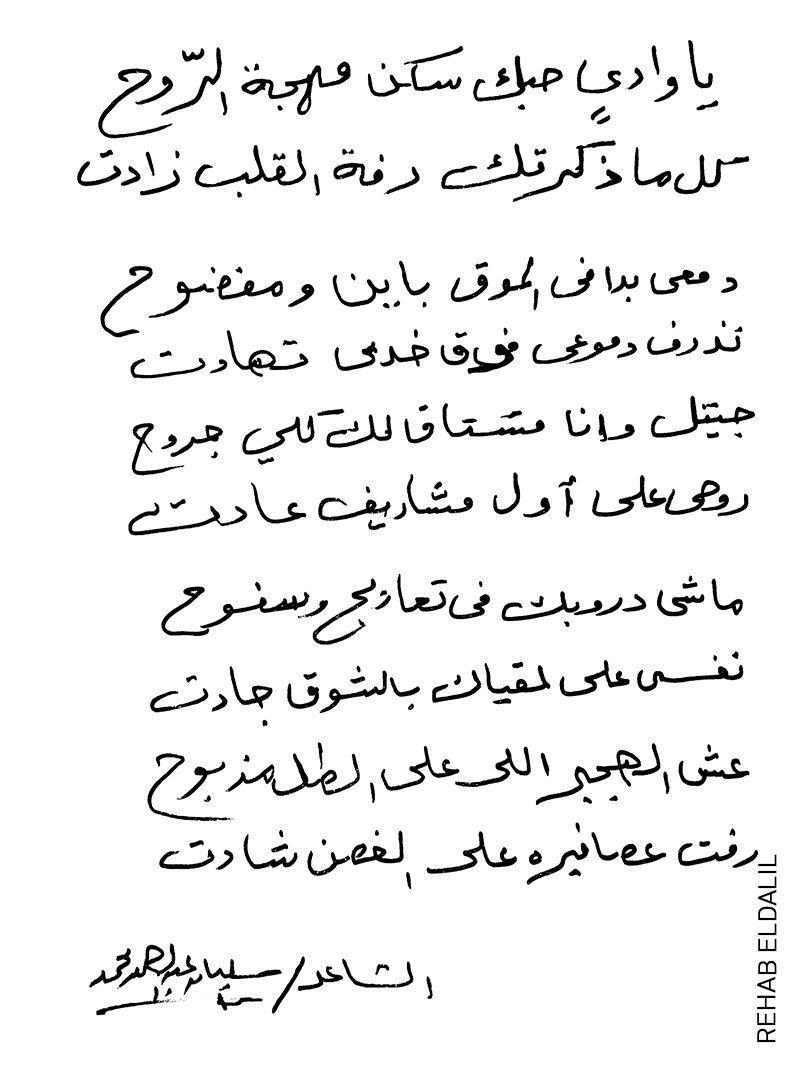 يا وادي حبك سكن مهجة الرّوح
كل ما ذكرتك رفة القلب زادت
دمعى بدا فى الموق باين ومفضوح
تذرف دموعى فوق خدى تهادت
جيتك وانا مشتاق لك كلي جروح
روحى على أول مشاريف عادت
ماشى دروبك فى تعاريج وسفوح
نفسى على لمقياك بالشوق جادت
عش الهجير اللى على الطل مذبوح
رفت عصافيره على الغصن شادت
الشاعر / سليمان عبد الرحمن محمد
REHAB ELDALIL